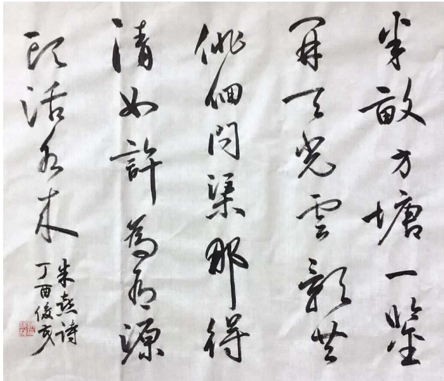 半畝方塘一鑒
開天光雲影共
徘徊問渠那得
清如許為有源
頭活水來
朱熹詩
丁酉俊